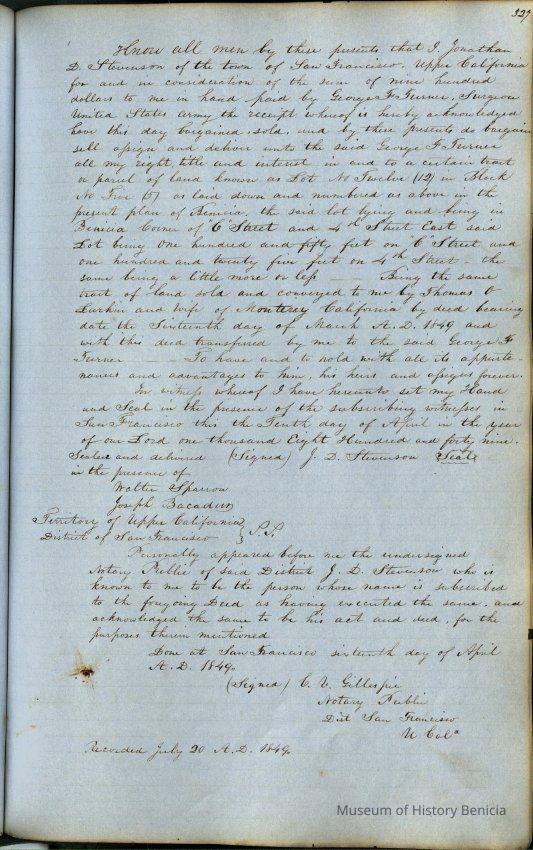 327
Know all men by these presents that I, Jonathan
D. Stevenson of the town of San Francisco, Upper California
for and in consideration of the sum of nine hundred
dollars to me in hand paid by George F. Turner, Surgeon
United States army the receipt whereof is hereby acknowledged
have this day bargained, sold, and by these presents do bargain
sell assign and deliver unto the said George F. Turner
all my right, title and interest in and to a certain tract
or parcel of land known as Lot No Twelve (12) in Block
No Five (5) as laid down and numbered as above in the
present plan of Benicia, the said lot lying and being in
Benicia Corner of "C" Street and 4th Street East said
Lot being One hundred and fifty feet on "C" Street and
one hundred and twenty five feet on 4th Street - the
same being a little more or less Being the same
tract of land sold and conveyed to me by Thomas O
Larkin and wife of Monterey California by deed bearing
date the Sixteenth day of March A.D. 1849 and
with this deed transferred by me to the said George F.
Turner To have and to hold with all its appurte-
nances and advantages to him, his heirs and assigns forever.
In witness whereof I have hereunto set my Hand
and Seal in the presence of the subscribing witnesses in
San Francisco this the Tenth day of April in the year
of our Lord one thousand Eight Hundred and forty nine.
Sealed and delivered (Signed) J. D. Stevenson Seal
in the presence of
Walter Sparrow
Joseph
Territory of Upper California
District of San Francisco } S.S.
Personally appeared before me the undersigned
Notary Public of said District J. D. Stevenson who is
known to me to be the person whose name is subscribed
to the foregoing Deed as having executed the same, and
acknowledged the same to be his act and deed, for the
purposes therein mentioned
Done at San Francisco sixteenth day of April
A.D. 1849.
(Signed) C. V. Gillespie
Notary Public
Dist San Francisco
U Cala
Recorded July 20 A.D. 1849.
Museum of History Benicia